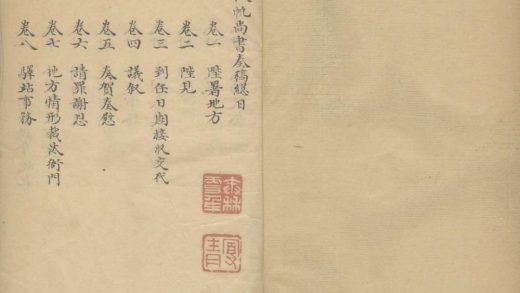 帆尚書奏稿總目
卷一 陞署地方
卷二 陛見
卷三 到任日期接收交代
卷四 議叙
卷五 奏賀奏慰
卷六 請罪謝恩
卷七 地方情形裁汰衙門
卷八 驛站事務